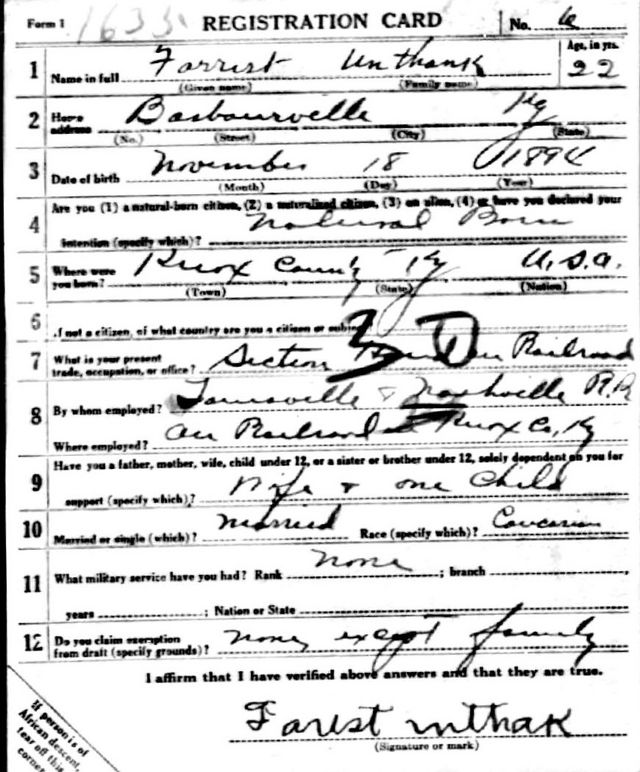 Form 1 1633 REGISTRATION CARD No. 6
Age, in yrs.
1 Name in full Forrest Unthank 22
(Given name) (Family name)
2 Home address Barbourville Ky
(No.) (Street) (City) (State)
3 Date of birth November 18 1894
(Month) (Day) (Year)
Are you (1) a natural-born citizen, (2) a naturalized citizen, (3) an alien, (4) or have you declared your
4 intention (specify which)? Natural Born
5 Where were you born? Knox County Ky U.S.A.
(Town) (State) (Nation)
6 If not a citizen, of what country are you a citizen or subject
30
7 What is your present trade, occupation, or office? Section Hand on Railroad
8 By whom employed? Louisville & Nashville R.R
Where employed? On Railroad Knox Co, Ky
Have you a father, mother, wife, child under 12, or a sister or brother under 12, solely dependent on you for
9 support (specify which)? Wife & one Child
10 Married or single (which)? Married Race (specify which)? Caucasian
11 What military service have you had? Rank None ; branch
years ; Nation or State
12 Do you claim exemption from draft (specify grounds)? None except family
I affirm that I have verified above answers and that they are true.
Forest unthak
(Signature or mark)
If person is of
African descent,
tear off this
corner